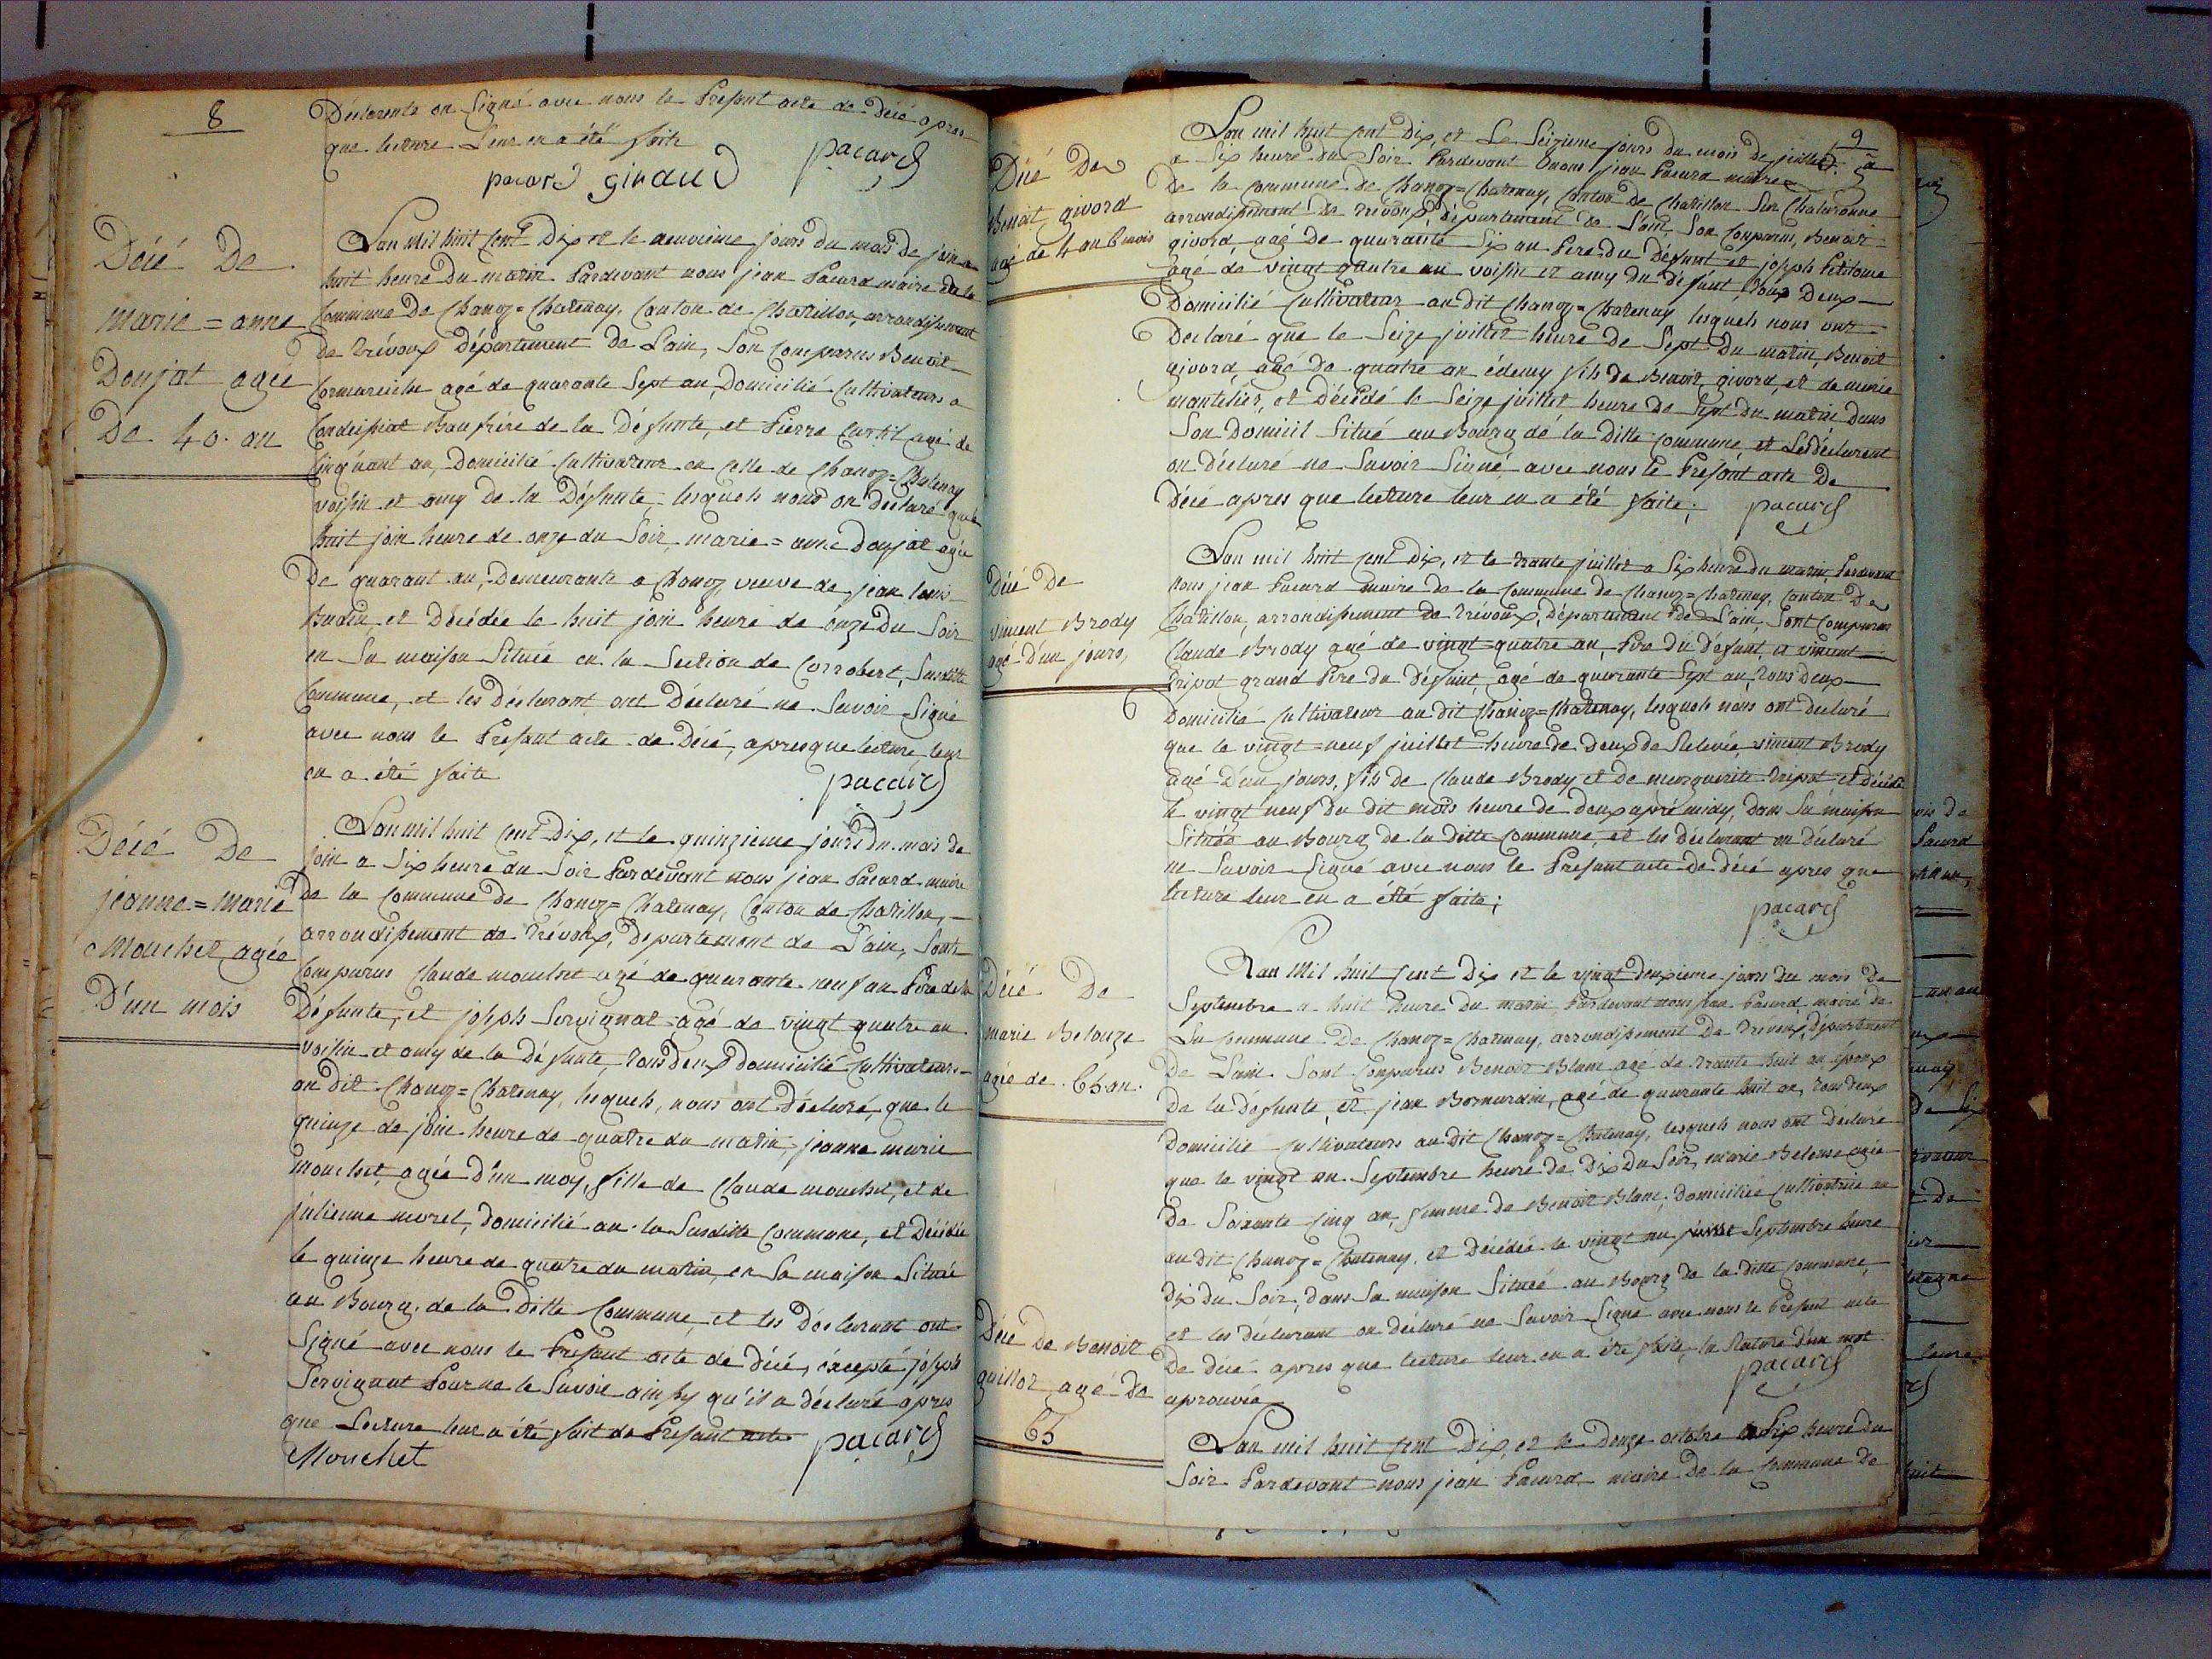 8
Déclarants on Signé avec nous le Présent acte de Décé apres
que lecture Leur en a été faite
pacard giraud pacard
Décé De
marie=anne
Doujat agée
De 40. an
Lan Mil huit Cent Dix et le neuvieme jours du mois de join a
huit heure Du matin Pardevant nous jean Pacard maire de la
Commune De Chanoz=Chatenay, Canton de Chatillon, arrondissement
De Trévoux Département De L'ain, Son Comparus Benoit
agé de quarante Sept an, Domicilié Cultivateurs a
Condeissiat Beaufrére de la Défunte, et Pierre Curtil agé de
Cinq'uant an, Domicilié Cultivateur en celle de Chanoz=Chatenay
voisin et amy de la Défunte, lesquels nous on déclaré que le
huit join heure de onze du Soir, marie=anne Doujat agée
De quarant an, Demeurante a Chanoz, veuve de jean louis
Budin et Décédée le huit join heure de onze Du Soir
en Sa maison Située en la Section de Corrobert, Susditte
Commune, et les déclarant ont Déclaré ne Savoir Signé
avec nous le Présant acte de Décé, apres que lecture leur
en a été faite
pacard
Décé De
jeanne=marie
Mouchet agée
D'un mois
Lan mil huit Cent Dix, et le quinzieme jours Du mois de
join a Six heure du Soir Pardevant nous jean Pacard maire
De la Commune De Chanoz=Chatenay, Canton de Chatillon,
arrondissement de Trévoux, Département de L'ain, Sont
Comparus Claude mouchet agé de quarante neuf an Pere de la
Défunte, et joseph Servignat agé de vingt quatre an
voisin et amy de la Défunte, tous deux domicilié Cultivateurs
an dit Chanoz=Chatenay, lesquels, nous ont Déclaré, que le
quinze de join heure de quatre du matin, jeanne marie
mouchet, agée D'un moy, fille de Claude mouchet, et de
julienne morel, Domicilié an la Susditte Commune, et Décédée
le quinze heure de quatre du matin, en Sa maison Située
au Bourg de la Ditte Commune, et les Déclarant ont
Signé avec nous le Présant acte de décé, éxcepté joseph
Servignat Pour ne le Savoir ainsy qu'il a déclaré apres
que Lecture leur a été fait du Présant acte
Mouchet pacard
9
Décé De
Benoit givord
agé de 4 an 6 mois
Lan mil huit Cent Dix, et Le Seizieme jours du mois de juillet
a Six heure du Soir Pardevant nous jean Pacard maire
De la Commune de Chanoz=Chatenay, Canton de Chatillon Sur Chalaronne
arrondissement de Trévoux, département de L'ain, Son Comparus, Benoit
givord, agé De quarante Six an Pere du Défunt et joseph
agé de vingt quatre an voisin et amy du défunt, tous Deux
Domicilié Cultivateur an dit Chanoz=Chatenay lesquels nous ont
Déclaré que le Seize juillet heure de Sept Du matin, Benoit
givord, agé de quatre an édemy fils de Benoit givord, et de marie
mantélier, et Décédé le Seize juillet heure de Sept du matin dans
Son Domicil Situé au Bourg de la Ditte Commune, et Les Déclarent
on Déclaré ne Savoir Signé avec nous le Présant acte De
Décé apres que lecture leur en a été faite; pacard
Décé De
vincent Brody
agé D'un jours,
Lan mil huit Cent Dix, et le trante juillet a Six heure du matin Pardevant
nous jean Pacard maire de la Commune de Chanoz=Chatenay, Canton De
Chatillon, arrondissement de Trévoux, Département De L'ain, Sont Comparus
Claude Brody agé de vingt quatre an, Pere du défunt, et vincent
Tripot grand Pere du Défunt, agé de quarante Sept an, tous deux
Domicilié Cultivateur au dit Chanoz=Chatenay, lesquels nous ont declaré
que le vingt=neuf juillet heure de deux de Relevée, vincent Brody
agé D'un jours, fils de Claude Brody et de marguerite Tripot et décédé
le vingt neuf du dit mois heure de deux apré midy, dans Sa maison
Située au Bourg de la Ditte Commune, et les déclarant on déclaré
ne Savoir Signé avec nous le Présant acte De décé apres que
lecture leur en a été faite; pacard
Décé De
marie Belouze
agée de 65 an.
Lan Mil huit Cent Dix et le vingt deuxieme jours du mois De
Septembre a huit heure du matin Pardevant nous jean Pacard maire de
La Commune De Chanoz=Chatenay, arrondissement De Trévoux, Département
De L'ain. Sont Comparus Benoit Blanc agé de trante huit an époux
De la Défunte, et jean Bornardin, agé de quarante huit an, tous deux
domicilié Cultivateurs au dit Chanoz=Chatenay, lesquels nous ont declaré
que le vingt un Septembre heure De Dix Du Soir, marie Belouse agée
De Soixante Cinq an, femme De Benoit Blanc, domiciliée Cultivatrice an
au dit Chanoz=Chatenay, et Décédée le vingt un Septembre heure
dix du Soir, dans Sa maison Située au Bourg de la Ditte Commune,
et les déclarant on déclaré ne Savoir Signé avec nous le Présant acte
De décé apres que lecture leur en a été faite, la Rature d'un mot
aprouvée pacard
Décé De Benoit
guillot agé De
65
Lan mil huit Cent Dix, et le Douze octobre a Six heure Du
Soir Pardevant nous jean Pacard maire De la Commune De